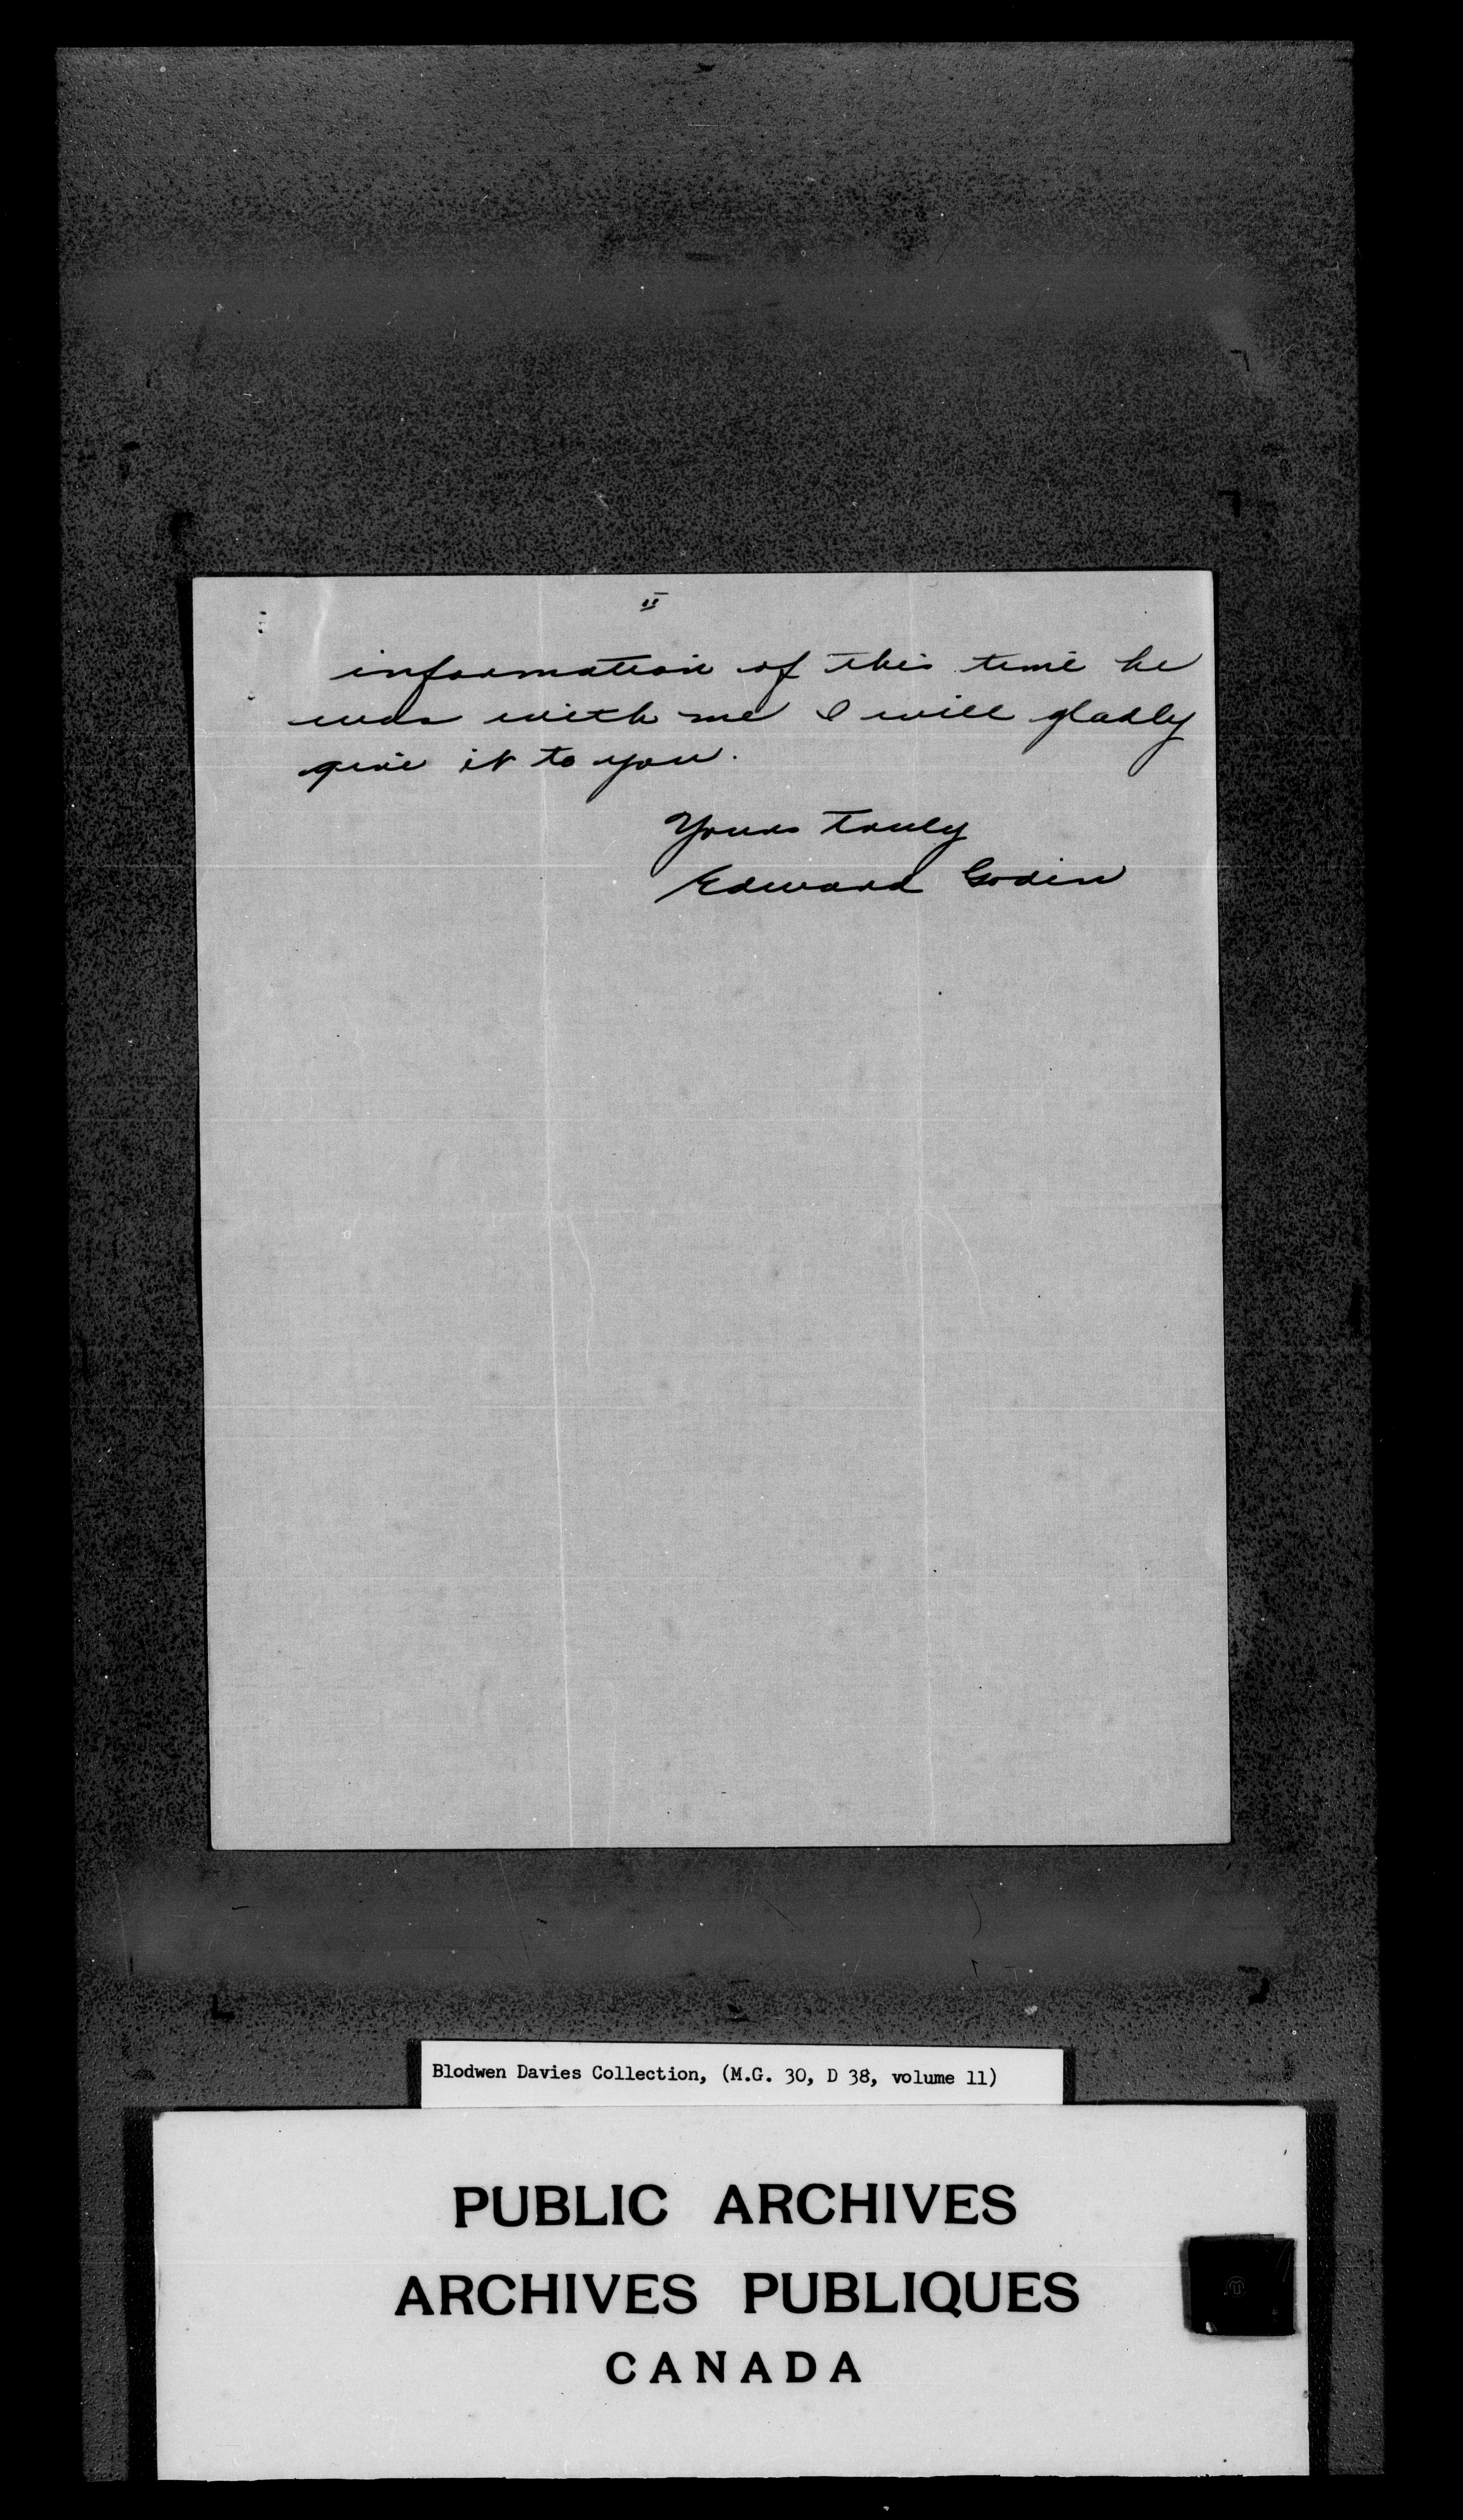 II
information of this time he
was with me I will gladly
give it to you.
Yours truly
Edward Godin
Blodwen Davies Collection, (M.G. 30, D 38, volume 11)
PUBLIC ARCHIVES
ARCHIVES PUBLIQUES
CANADA